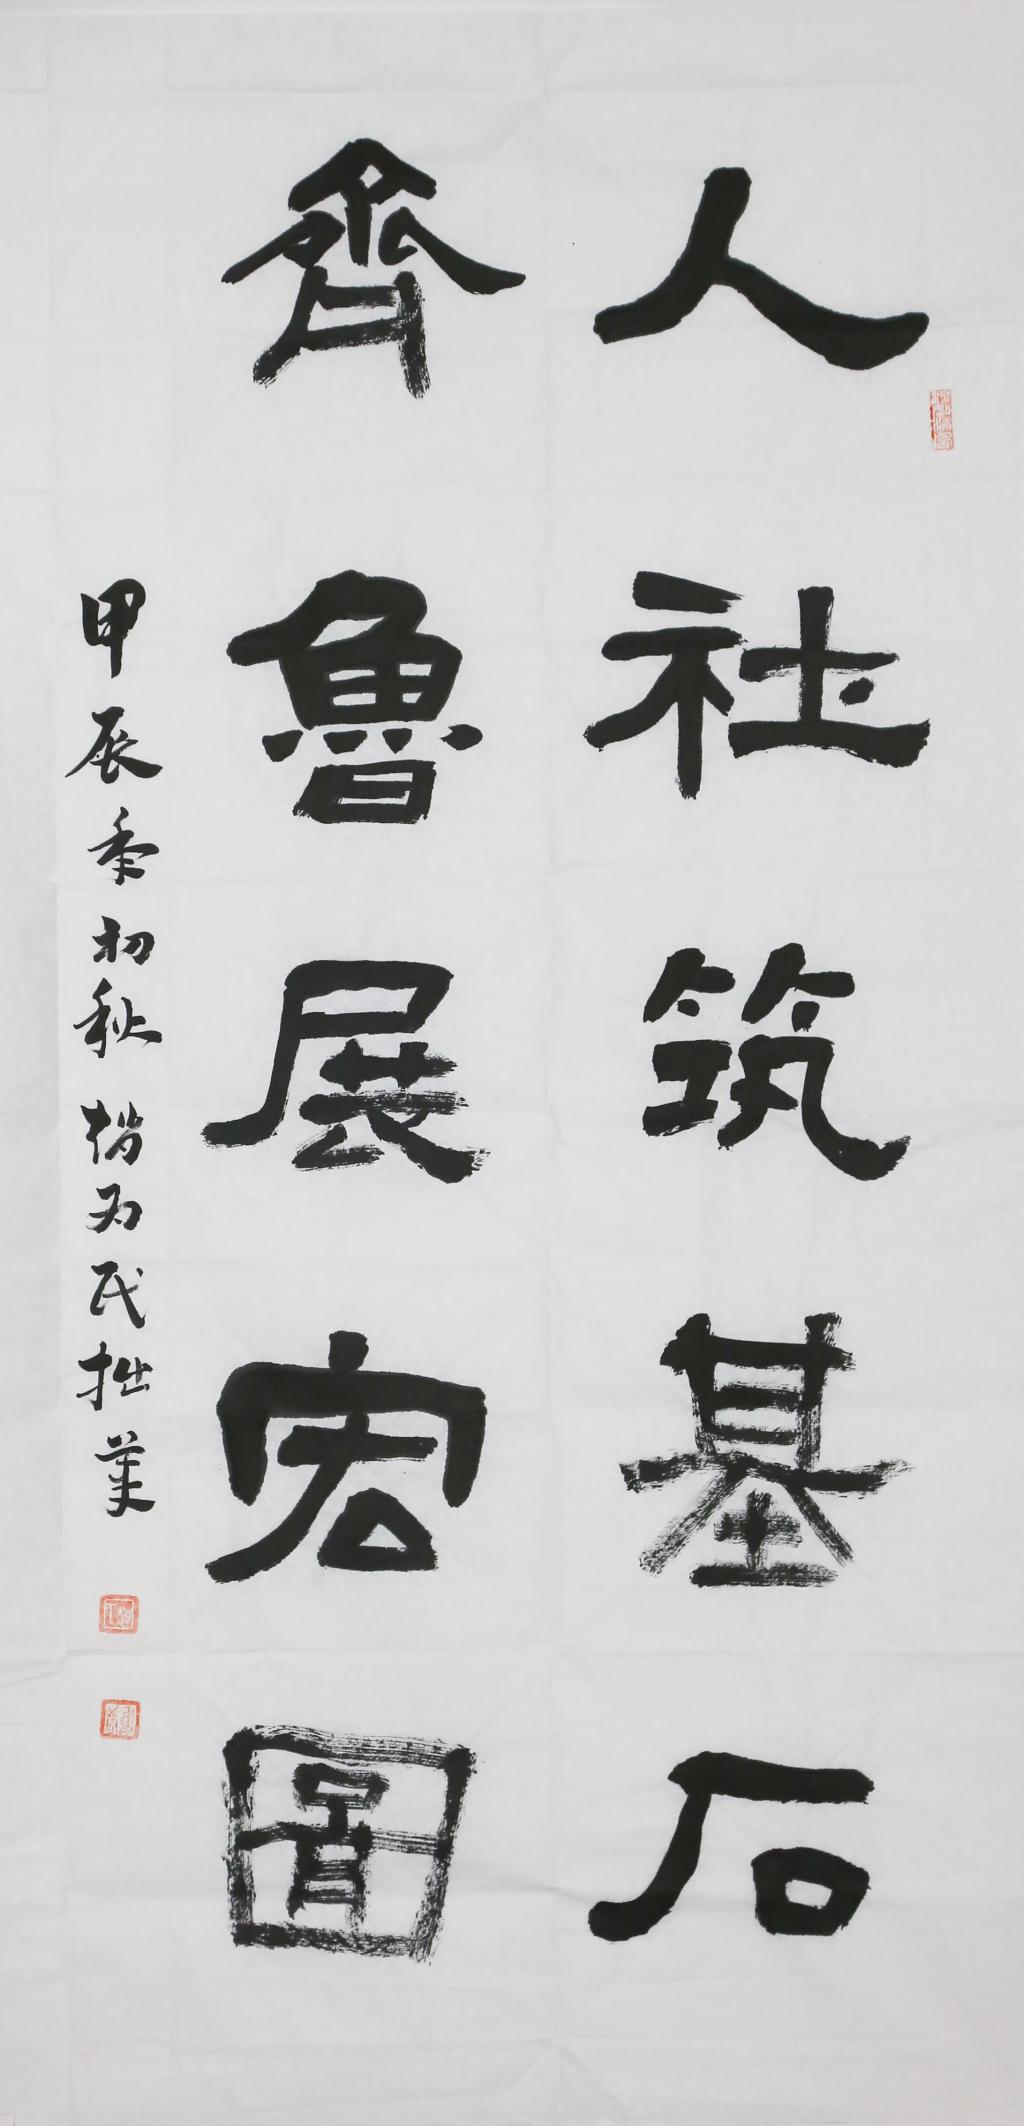 人社筑基石
齊魯展宏圖
甲辰年初秋 楷为民拙筆